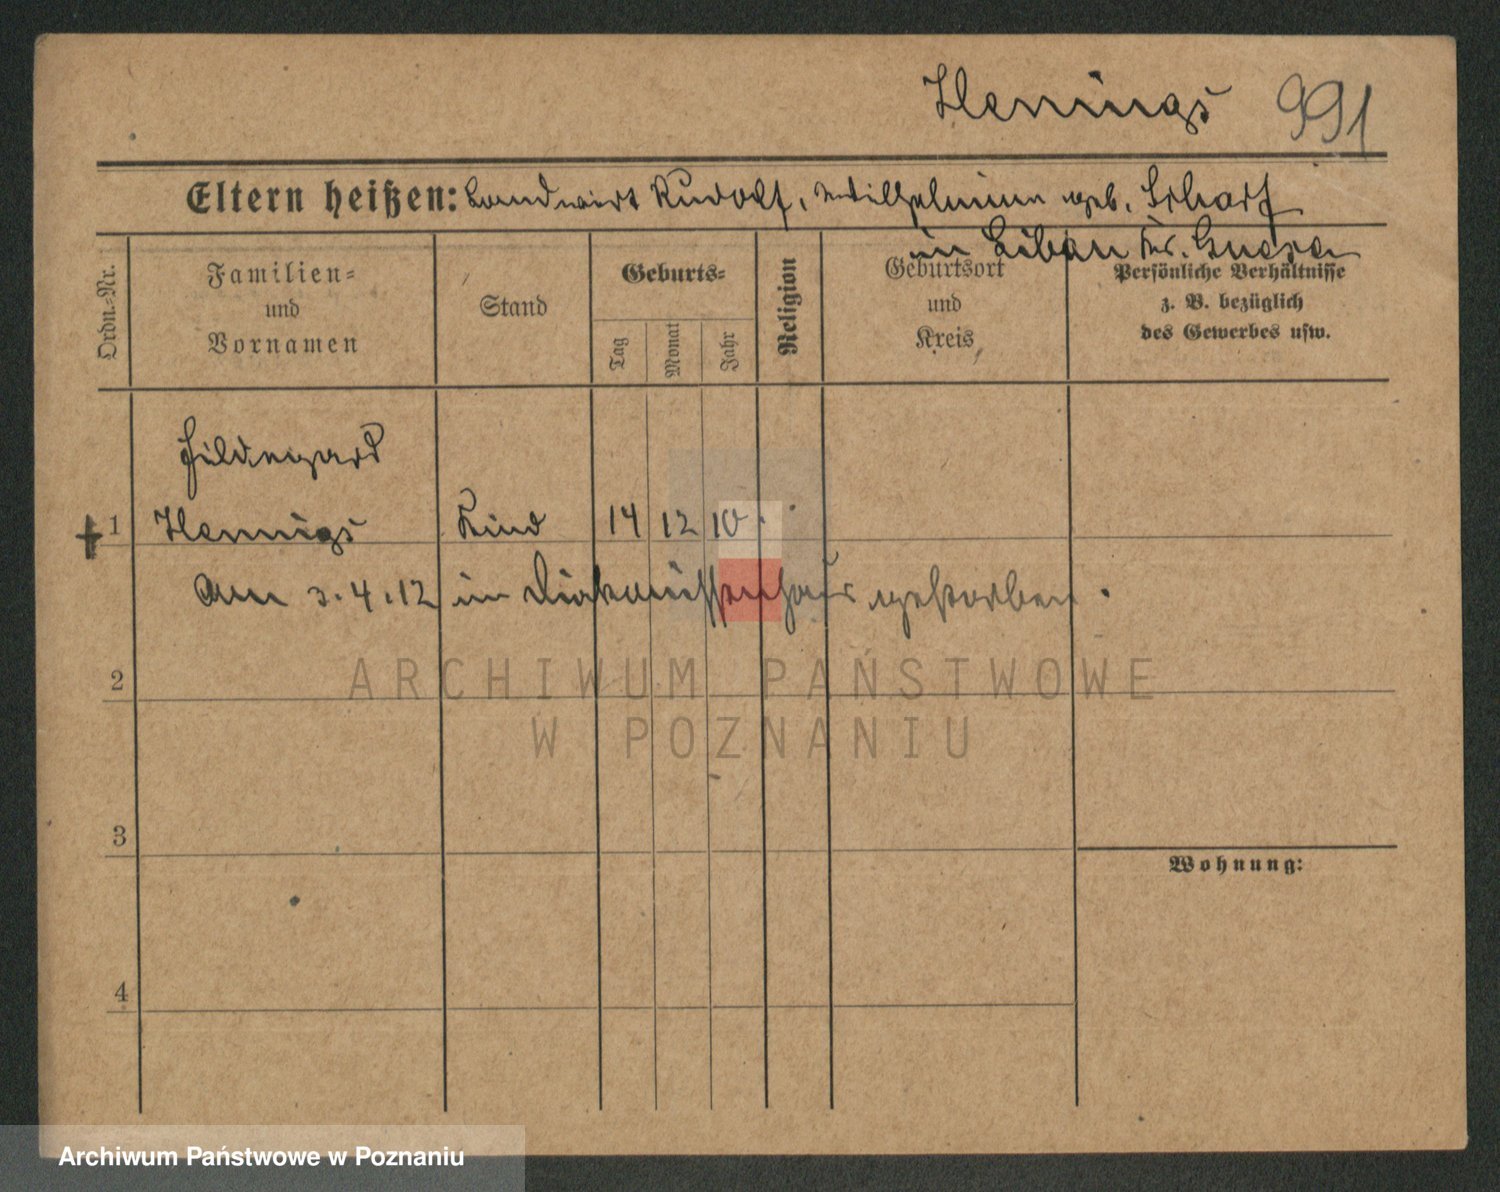 Hennings 991
Eltern heißen: Landwirt Rudolf, Wilhelmine geb. Scharf
in Libau Kr. Gnesen
Ordn.-Nr.
Familien-
und
Vornamen
Stand
Geburts-
Tag
Monat
Jahr
Religion
Geburtsort
und
Kreis
Persönliche Verhältnisse
z. B. bezüglich
des Gewerbes usw.
Hildegard
+ 1 Hennigs Kind 14 12 10.
am 3.4.12 in Diakonissenhaus gestorben.
2
3
4
Wohnung:
ARCHIWUM PAŃSTWOWE
W POZNANIU
Archiwum Państwowe w Poznaniu